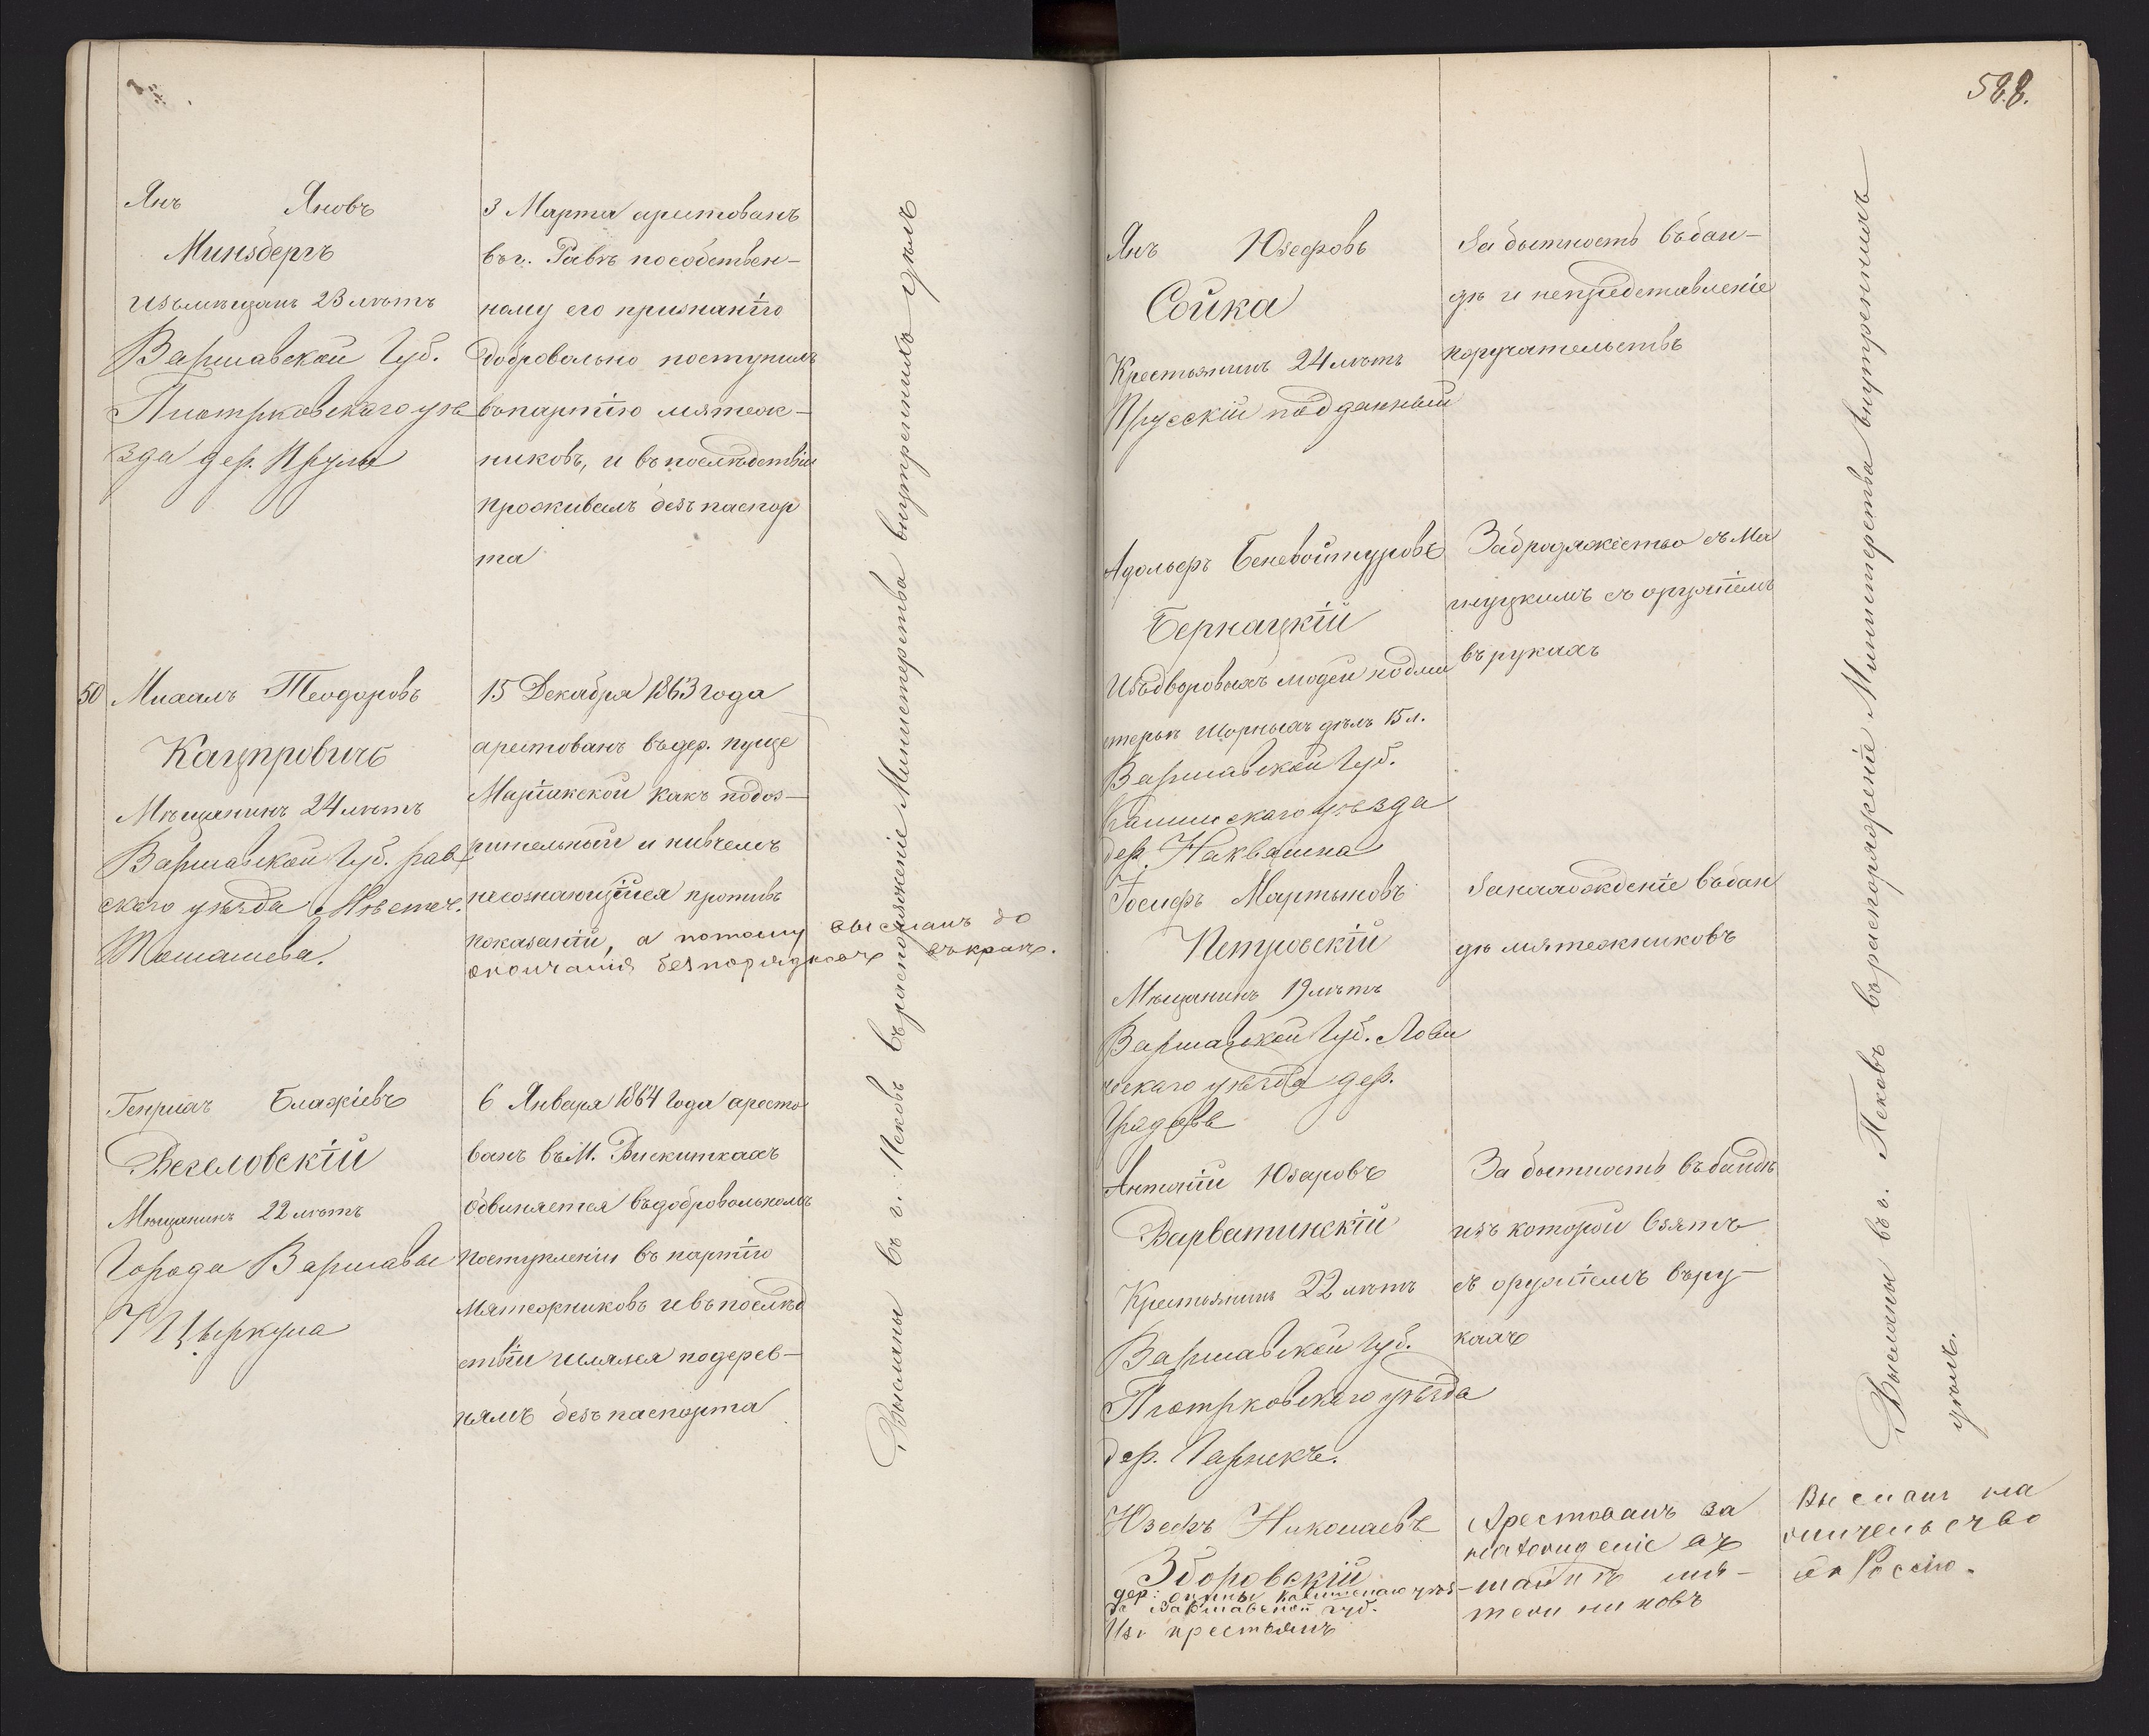 Янъ Яновъ
Минзбергъ
изъ мѣщанъ 23 лѣтъ
Варшавской Губ.
Піотрковскаго уѣ
зда дер.
3 Марта арестованъ
въ г. Равѣ по собствен-
ному его признанію
добровольно поступилъ
въ партію мятеж-
никовъ, и въ послѣдствіи
проживалъ безъ паспор
та
50 Михалъ Теодоровъ
Кацпровичъ
Мѣщанинъ 24 лѣтъ
Варшавской Губ. рав
скаго уѣзда Мѣстеч.
Томашева.
15 Декабря 1863 года
арестованъ въ дер. пуще
Маріинской какъ подоз-
рительный и ни въ чемъ
несознающійся противъ
показаній, а потому высланъ до
окончанія безпорядковъ въ краѣ.
Генрихъ Блажіевъ
Веселовскій
Мѣщанинъ 22 лѣтъ
Города Варшавы
7 Цыркула
6 Января 1864 Года аресто
ванъ въ М. Вискиткахъ
Обвиняется въ добровольномъ
поступленіи въ партію
Мятежниковъ и въ послѣд
ствіи шлялся по дерев-
нямъ безъ паспорта
Высланы въ г. Псковъ въ распоряженіе Министерства внутреннихъ дѣлъ
588.
Янъ Юзефовъ
Сойка
Крестьянинъ 24 лѣтъ
Прусскій подданный
За бытность въ бан-
дѣ и непредставленіе
поручательствъ
Адольфъ Беневойтуровъ
Бернацкій
Изъ дворовыхъ людей подма
стерье Шорныхъ дѣлъ 15 л.
Варшавской Губ.
уѣзда
дер. Наквашна
За бродяжество съ Ма
тушкимъ съ оружіемъ
въ рукахъ
Іосифъ Мартыновъ
Петровскій
Мѣщанинъ 19 лѣтъ
Варшавской Губ. Лови
чскаго уѣзда дер.
За нахожденіе въ бан
дѣ мятежниковъ
Антоній Юзаровъ
Варватинскій
Крестьянинъ 22 лѣтъ
Варшавской Губ.
Піотрковскаго уѣзда
дер. Гарнекъ.
За бытность въ бандѣ
изъ которой взятъ
съ оружіемъ въ ру-
кахъ
Юзефъ Николаевъ
Зборовскій
дер. уѣз-
да Варшавской губ.
Изъ крестьянъ
Арестованъ за
нахожденіе въ
шайкѣ мя-
тежниковъ
Высланъ на
жительство
въ Россію.
Высланы въ г. Псковъ въ распоряженіе Министерства внутреннихъ
дѣлъ.